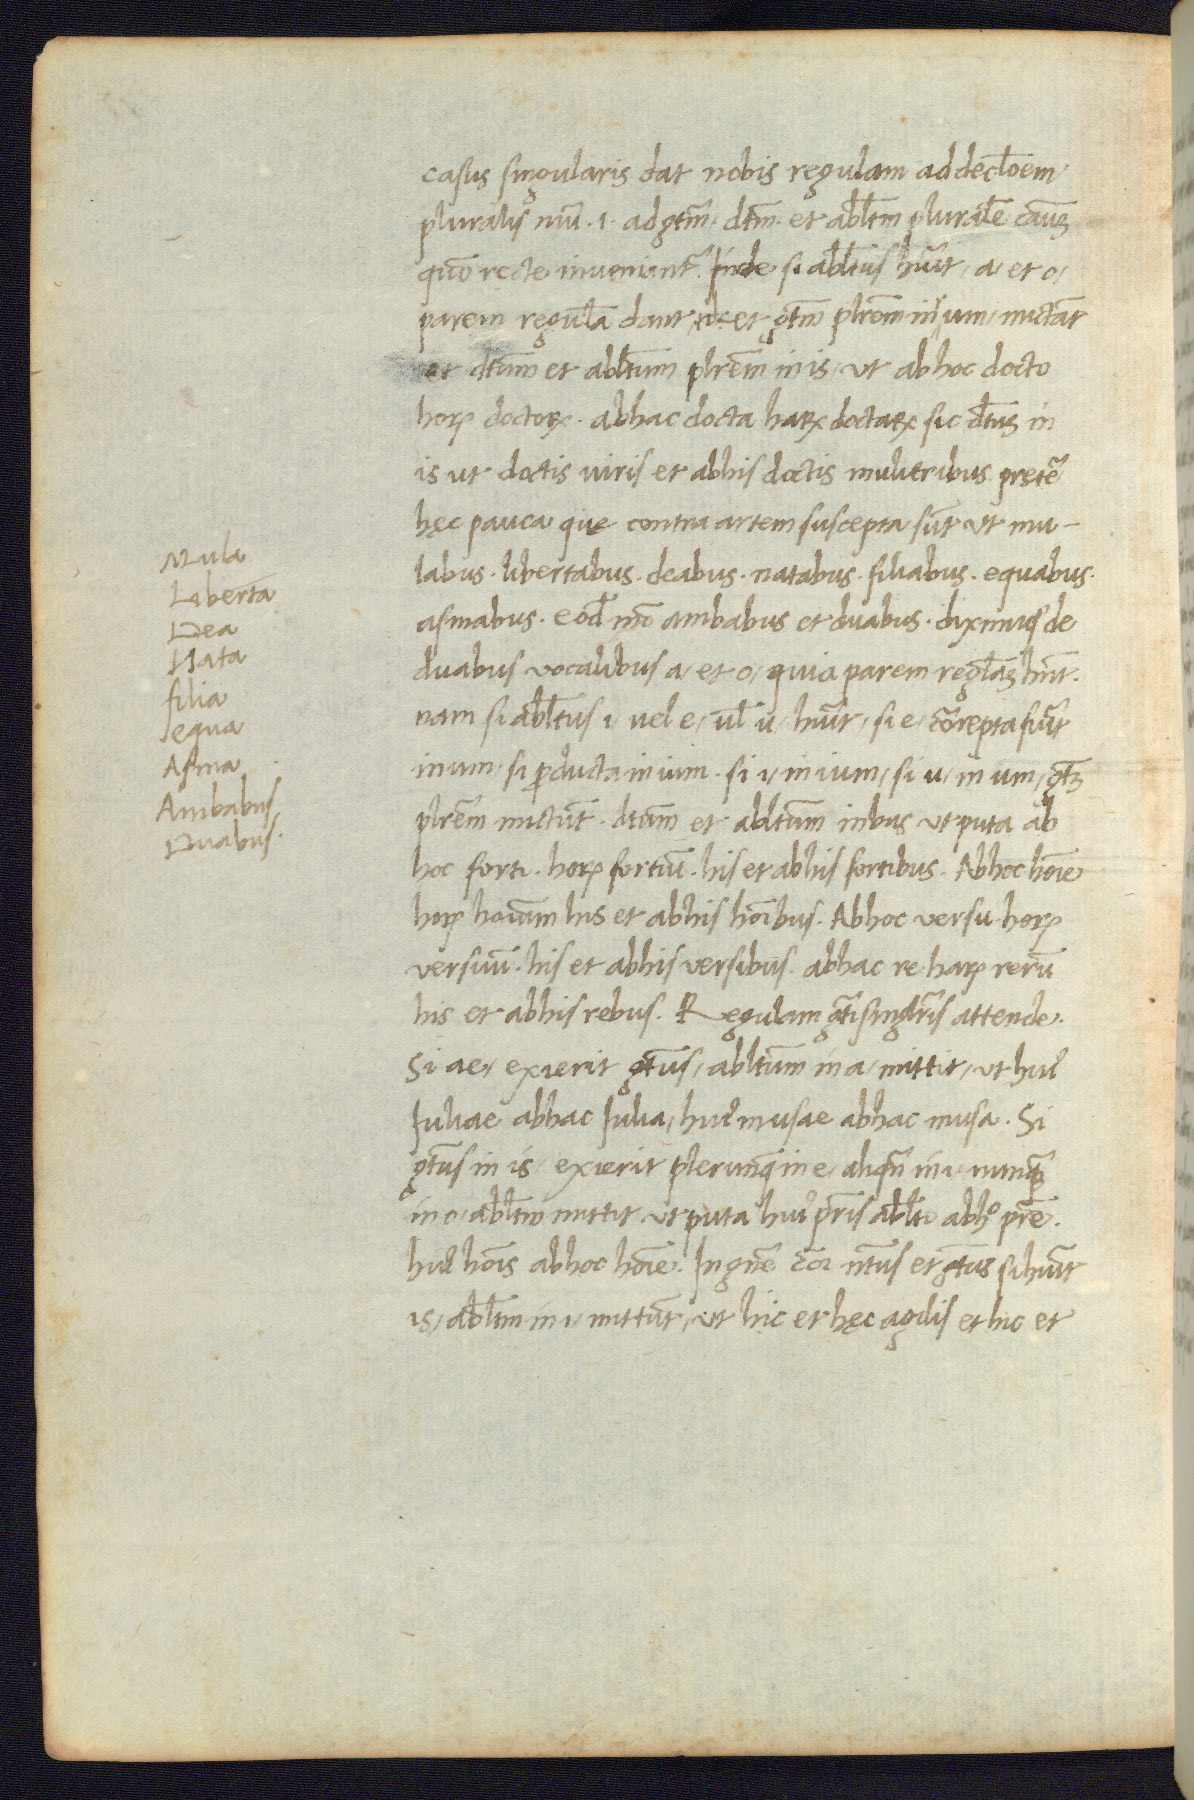 casus singularis dat nobis regulam ad declo̅em
pluralis nu̅i · i · ad gt̅m · dt̅m · et ablt̅m plurale̅ cau̅s
quo̅ recte inueniunt᷑. Inde si ablt̅us hu̅it / a / et o /
parem regula̅ dant
et dt̅um et ablt̅um plre̅m in is / ut ab hoc docto
horꝝ doctorꝝ · ab hac docta harꝝ doctarꝝ sic dt̅us in
is ut doctis uiris et ab his doctis mulieribus pręte᷑
hęc pauca quę contra artem suscepta su̅t ut mu-
labus · libertabus · deabus · natabus · filiabus · equabus ·
asinabus · eod̅ mo̅ ambabus et duabus · diximus de
duabus vocalibus a / et o / quia parem regl̅as hn̅t ·
nam si ablt̅us i / uel e / ul̅ u / hu̅it / si e / co̅repta fu̅it
in um / si ꝓducta in ium · si i / in ium / si u / in um / gt̅ꝫ
plre̅m mictu̅t · dt̅um et ablt̅um in bus ut puta ab
hoc forti · horꝝ fortiu̅ · his et ab his fortibus · Ab hoc ho̅ie
horꝝ ho̅iu̅m his et ab his ho̅ibus · Ab hoc versu · horꝝ
versuu̅ · his et ab his versibus · ab hac re · harꝝ reru̅
his et ab his rebus · Regulam gt̅i singlr̅is attende ·
Si ae / exierit gt̅us / ablt̅um in a / mittit / ut hui᷒
Iuliae ab hac Iulia / hui᷒ musae ab hac musa · Si
gt̅us in is / exierit pleru̅qꝫ in e / aliqn̅ in i / nunꝙ̅
in o / ablt̅m mittit ut puta hui᷒ pr̅is ablt̅o ab hº pr̅e ·
hui᷒ ho̅is ab hoc ho̅ie · In gn̅e co̅i nt̅us et gt̅us si hu̅it
is / ablt̅m in i / mittu̅t / ut hic et hęc agilis et hic et
Mula
Liberta
Dea
Nata
filia
equa
Asina
Ambabus
Duabus ·